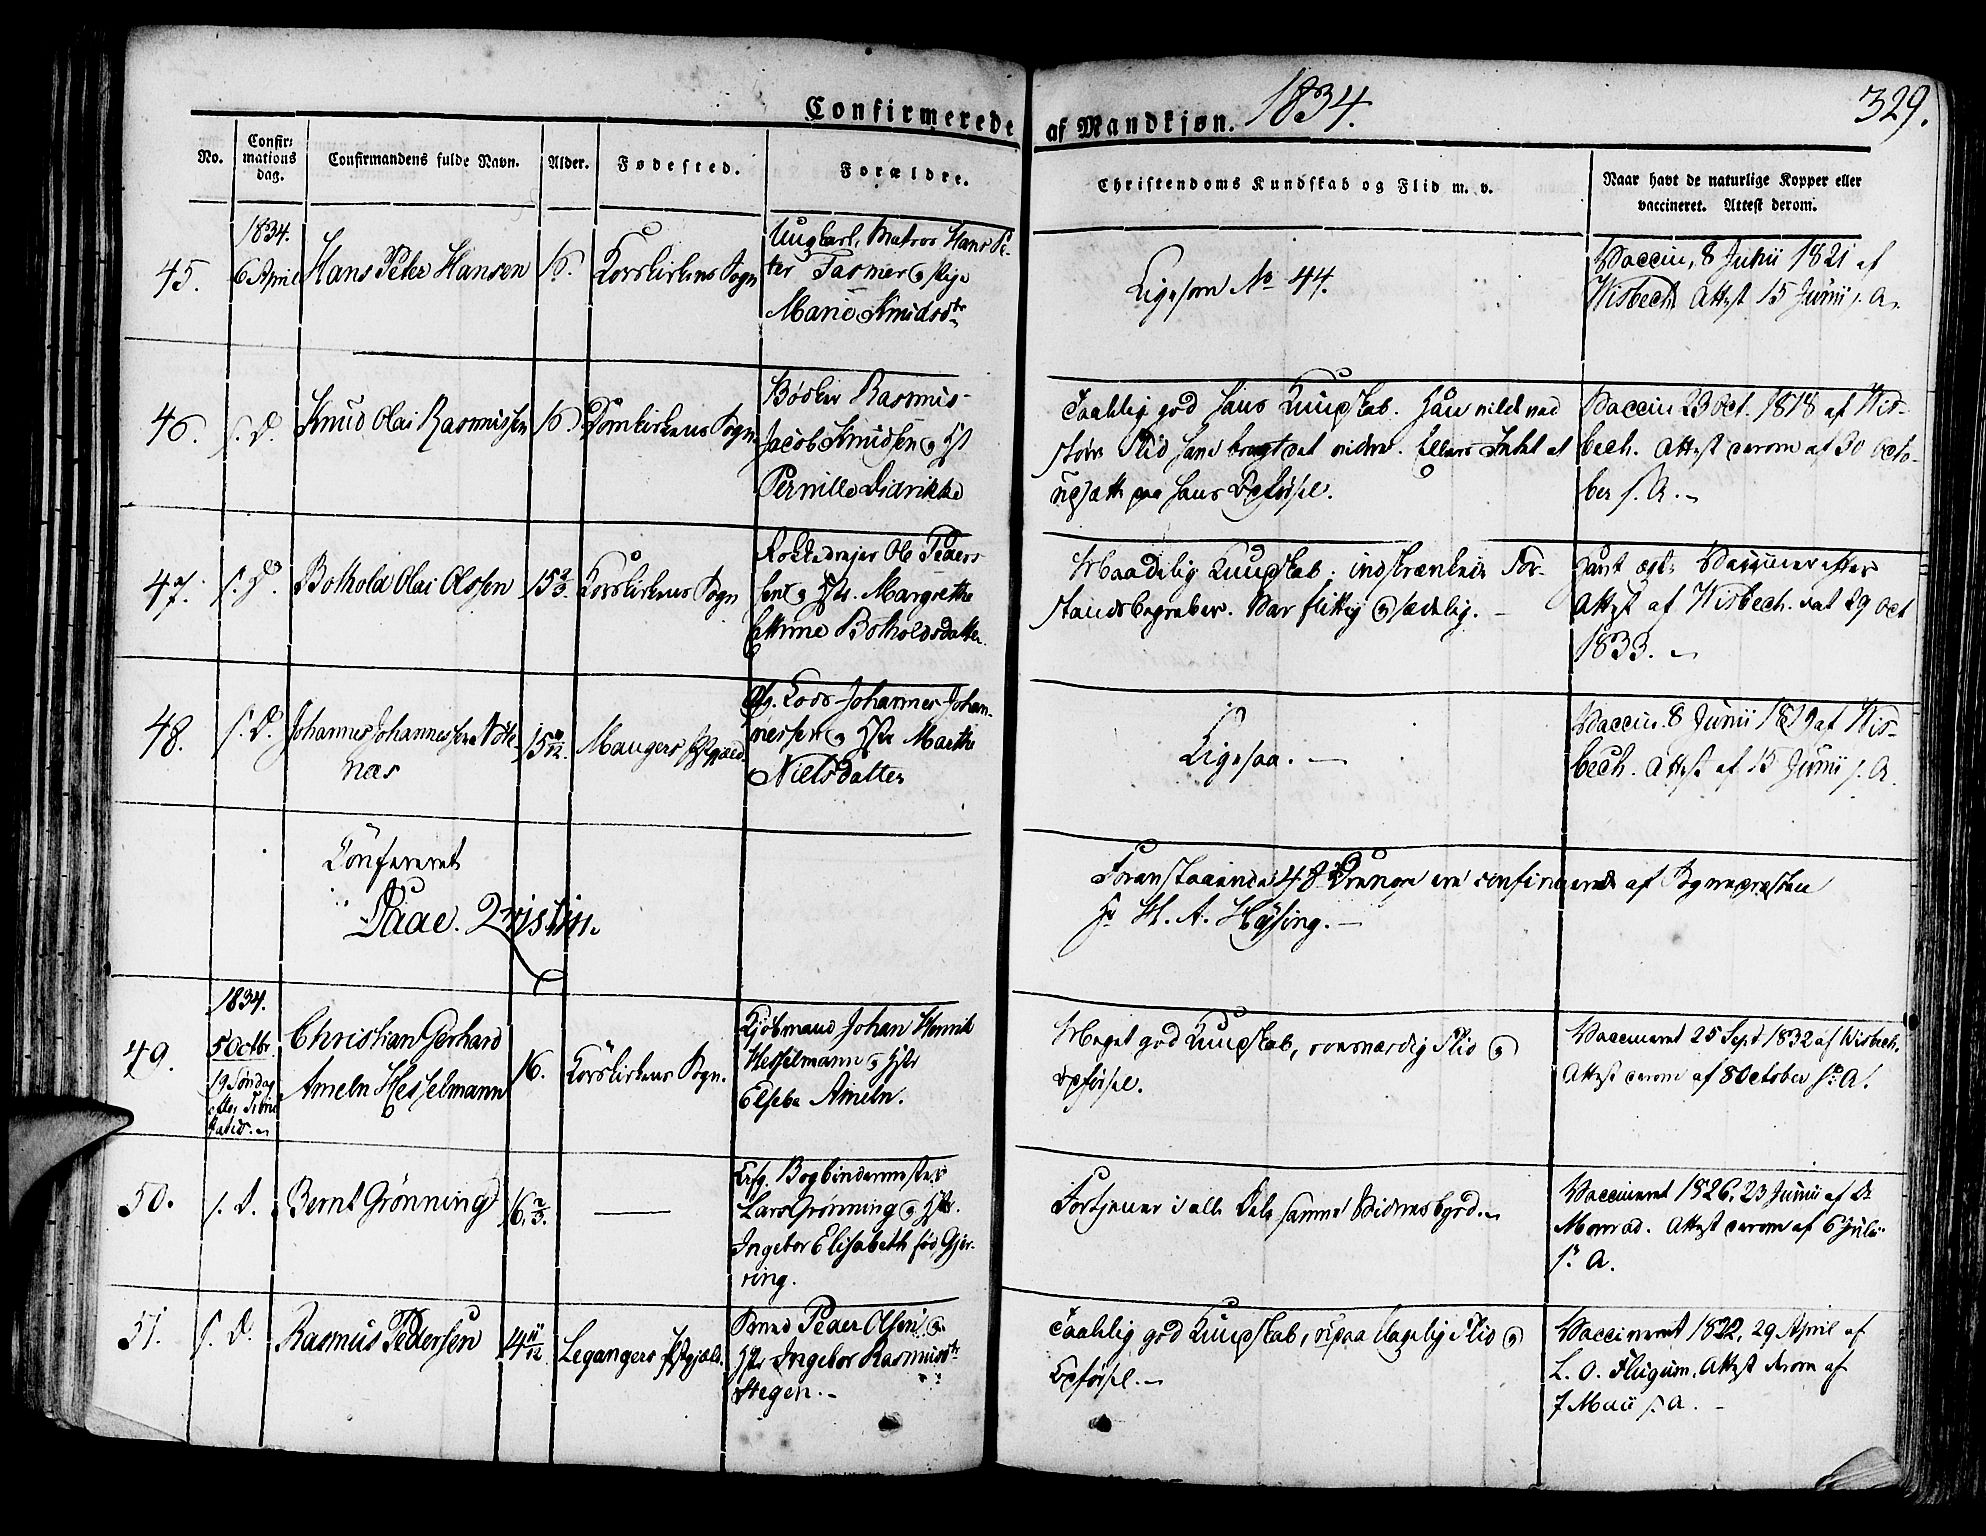 Confirmerede af Mandkjøn. 1834. 329.
No. Confirmations dag. Confirmandens fulde Navn. Alder. Fødested. Forældre. Christendoms Kundskab og Flid m. v. Naar havt de naturlige Kopper eller vaccineret. Attest derom.
1834.
45. 6 April Hans Peter Hansen 16. Korskirkens Sogn
Ungkarl, Matros Hans Pe-
ter Fasmer og Pige
Marie Knudsdtr
Ligesom No 44.
Vaccin. 8 Junii 1821 af
Wisbech Attest 15 Junii s. A.
46. s. D. Knud Olai Rasmussen 16 Domkirkens Sogn
Bødker Rasmus
Jacob Knudsen og Hst
Pernille Didrikke
Taalelig god hans Kundskab. Han vilde ved
større Flid have bragt det videre. Ellers Intet at
udsætte paa hans Opførsel.
Vaccin 23 Oct. 1818 af Wis-
bech. Attest derom af 30 Octo-
ber s. A.
47. s. D. Bothold Olai Olssen 15 2/3 Korskirkens Sogn
Rokkedreier Ole Peder-
sen og Hst. Margrethe
Botholdsdatter
Maadelig Kundskab; indskrænkede For-
standsbegreber. Var flittig og sædelig.
Vaccineret efter
Attest af Wisbech. dat 29 Oct
1833.
48. s. D. Johannes Johannessen
næs
15 Mangers Præstegield
Johannes Johan-
nessen og Hst Marthe
Nielsdatter
Ligesaa.
Vaccin. 8 Junii 1819 af Wis-
bech. Attest af 15 Junii s. A.
Confereret
Foranstaaende 48 Drenge ere confirmerede af Sognepræsten
Hr H. A. Hysing.
1834.
49. 5 Octbr.
19 Søndag
efter Trini
tatis.
Christian Gerhard
Ameln Hesselmann
16. Korskirkens Sogn.
Kjøbmand Johan Henrik
Hesselmann og Hst
Elsebe Ameln.
Meget god Kundskab, roesværdig Flid og
Opførsel.
Vaccineret 25 Sept 1832 af Wisbech.
Attest derom af 8 October s. A.
50. s. D. Bernt Grønning 16 2/3. —
Bogbindermester
Lars Grønning og Hst.
Ingebor Elisabeth fød Gjer-
ring.
Fortjener i alle Dele samme Vidnesbyrd.
Vaccineret 1826, 23 Junii af Dr
Monrad. Attest derom af 6 Julii
s. A.
51. s. D. Rasmus Pedersen 14 11/12 Leganger Præstegjæld.
Peder Olsen og
Hst Ingebor Rasmusdtr
Stegen.
Taalelig god Kundskab, upaaklagelig Flid og
Opførsel.
Vaccineret 1822, 29 April af
L. O. Flugum. Attest derom af
7 Maii s. A.